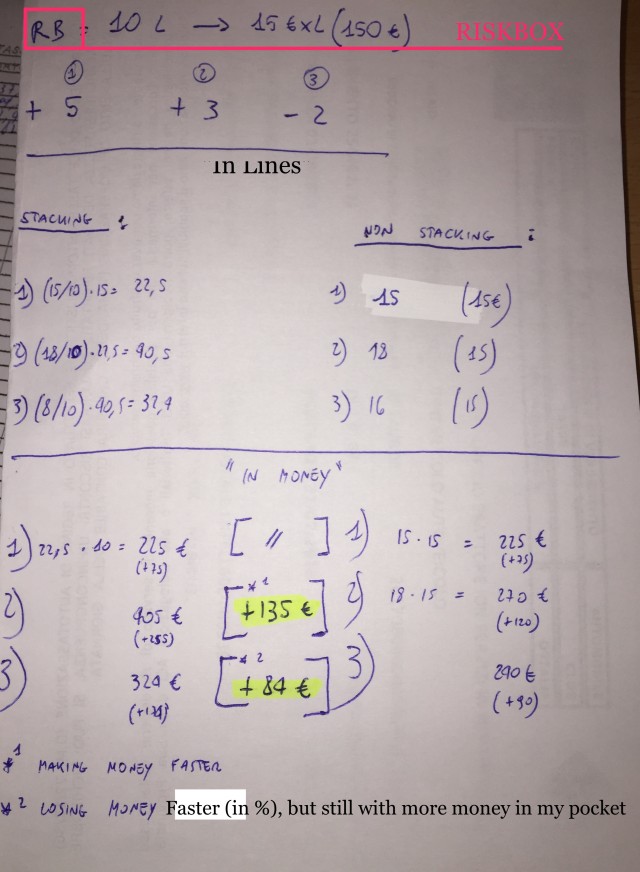 RB = 10 L → 15 € x L (150 €) RISKBOX
1 2 3
+ 5 + 3 - 2
In Lines
STACKING : NON STACKING :
1) (15/10) · 15 = 22,5 1) 15 (15€)
2) (18/10) · 22,5 = 40,5 2) 18 (15)
3) (8/10) · 40,5 = 32,4 3) 16 (15)
"IN MONEY"
1) 22,5 · 10 = 225 € [ // ] 1) 15 · 15 = 225 €
(+75) (+75)
2) 405 € [*1 +135 €] 2) 18 · 15 = 270 €
(+255) (+120)
3) 324 € [*2 +84 €] 3) 240 €
(+174) (+90)
*1 MAKING MONEY FASTER
*2 LOSING MONEY Faster (in %), but still with more money in my pocket